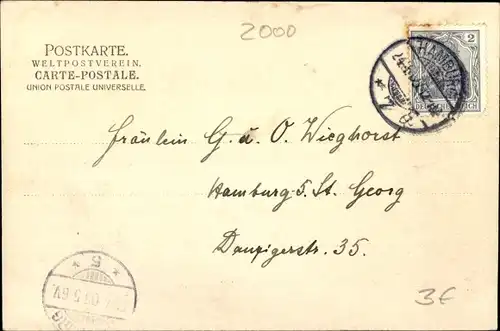 2000
POSTKARTE.
WELTPOSTVEREIN.
CARTE-POSTALE.
UNION POSTALE UNIVERSELLE.
2
HAMBURG
Fräulein G. u. O. Wieghorst
Hamburg-5. St. Georg
Danzigerstr. 35.
5
3€